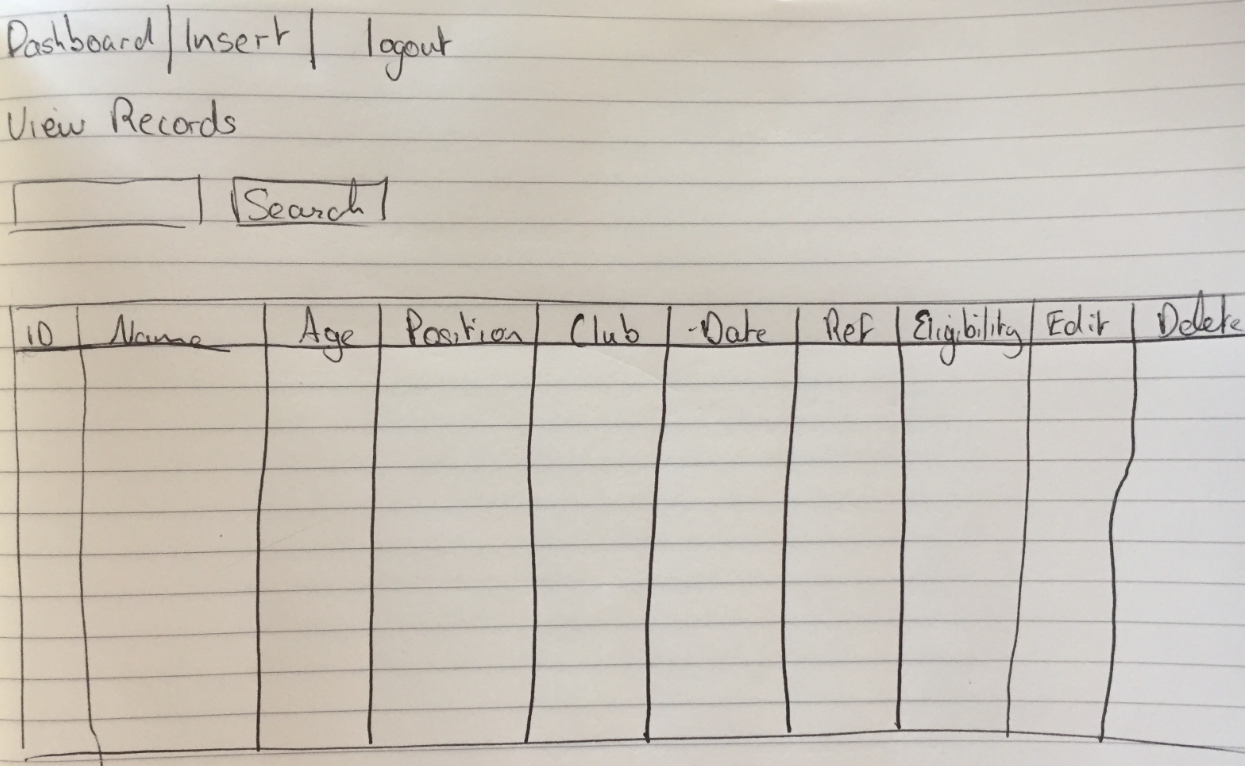 Dashboard | Insert | logout
View Records
Search
ID Name Age Position Club Date Ref Eligibility Edit Delete